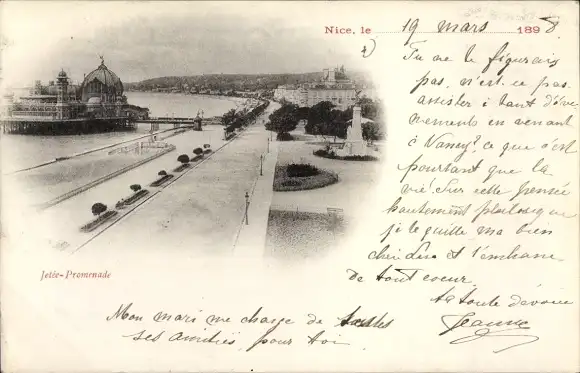 Nice, le 19 mars 1898
Tu ne le figurais
pas, n'est-ce pas,
assister à tant d'évé-
nements en venant
à Nancy? ce que c'est
pourtant que la
vie! Sur cette pensée
hautement philosophique
je te quitte ma bien
chère et t'embrasse
de tout coeur.
ta toute dévouée
Jeanne
Jetée-Promenade
Mon mari me charge de toutes
ses amitiés pour toi